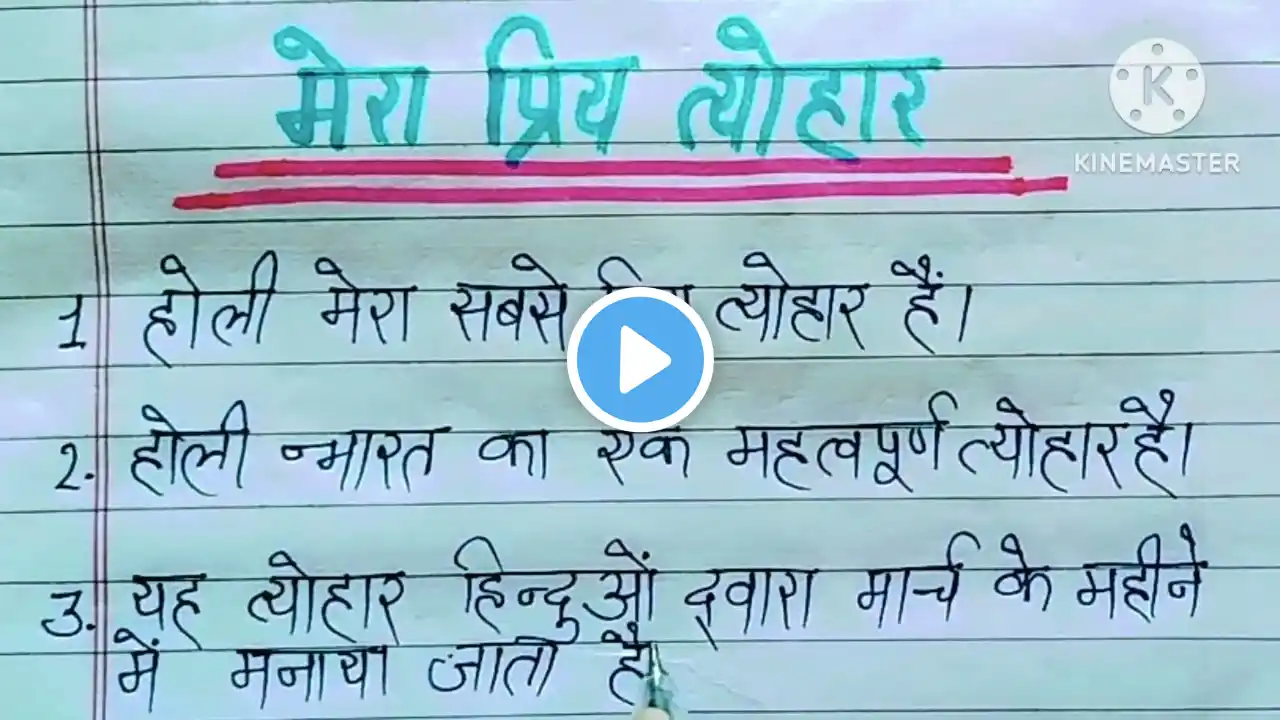 मेरा प्रिय त्योहार
K
KINEMASTER
1 होली मेरा सबसे त्योहार हैं।
2. होली भारत का एक महत्वपूर्ण त्योहार है।
3. यह त्योहार हिन्दुओं द्‌वारा मार्च के महीने
में मनाया जाता है